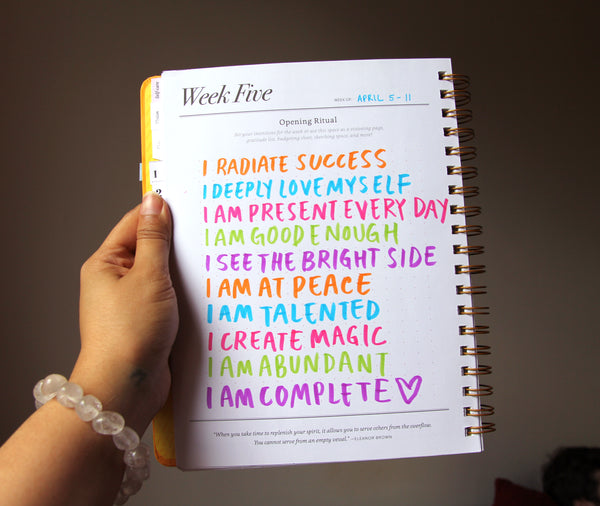 Week Five
WEEK OF: APRIL 5 - 11
Opening Ritual
Set your intentions for the week or use this space as a visioning page,
gratitude list, budgeting sheet, sketching space, and more!
I RADIATE SUCCESS
I DEEPLY LOVE MYSELF
I AM PRESENT EVERY DAY
I AM GOOD ENOUGH
I SEE THE BRIGHT SIDE
I AM AT PEACE
I AM TALENTED
I CREATE MAGIC
I AM ABUNDANT
I AM COMPLETE
"When you take time to replenish your spirit, it allows you to serve others from the overflow.
You cannot serve from an empty vessel." —ELEANOR BROWN
Self-care
1
2